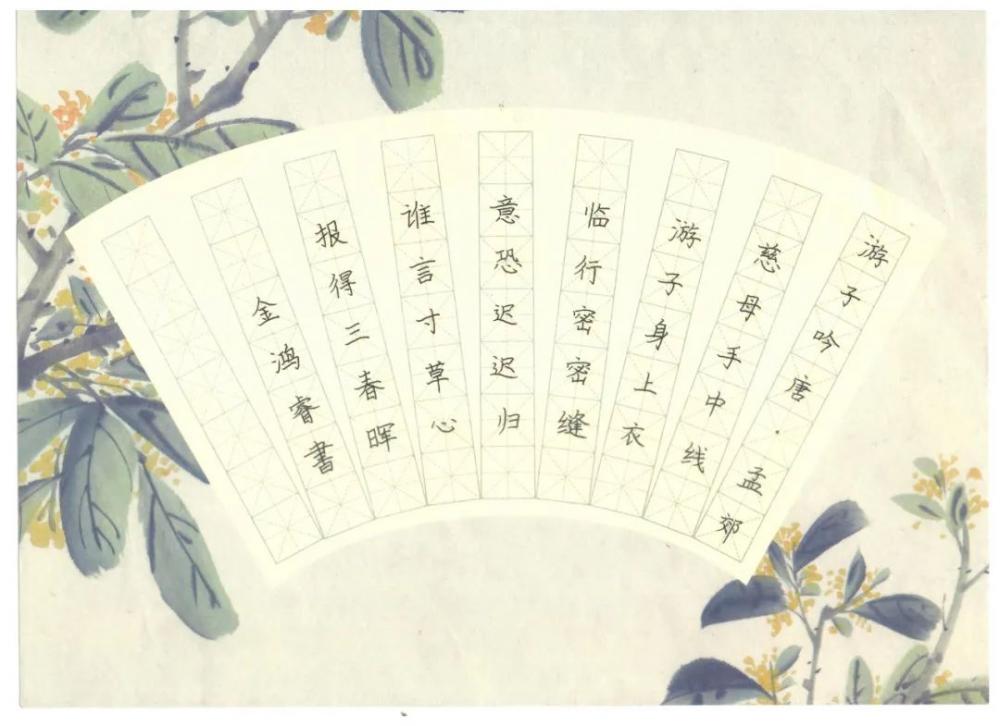 游子吟唐·孟郊
慈母手中线
游子身上衣
临行密密缝
意恐迟迟归
谁言寸草心
报得三春晖
金鸿睿書